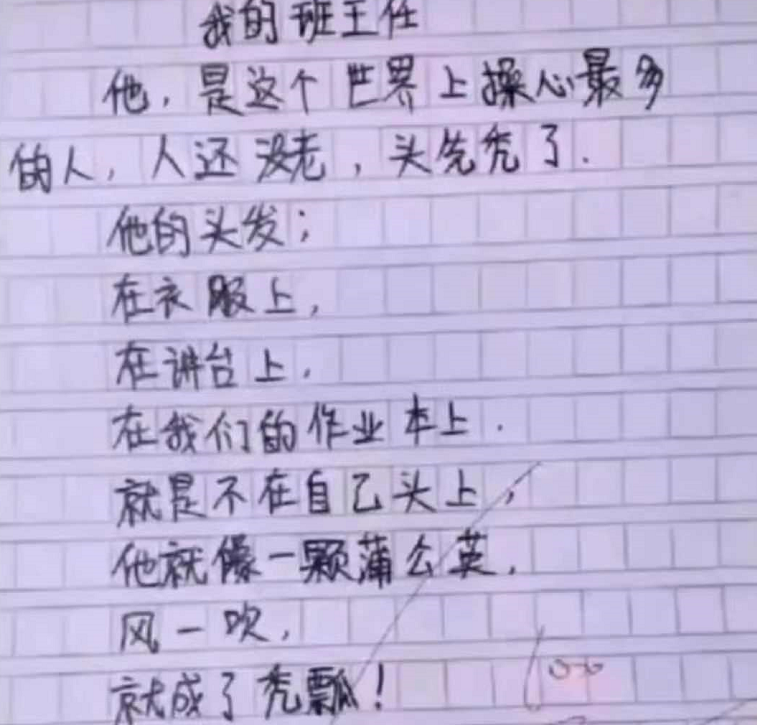 我的班主任
他，是这个世界上操心最多
的人，人还没老，头先秃了.
他的头发；
在衣服上，
在讲台上，
在我们的作业本上.
就是不在自己头上，
他就像一颗蒲公英，
风一吹，
就成了秃瓢！
100